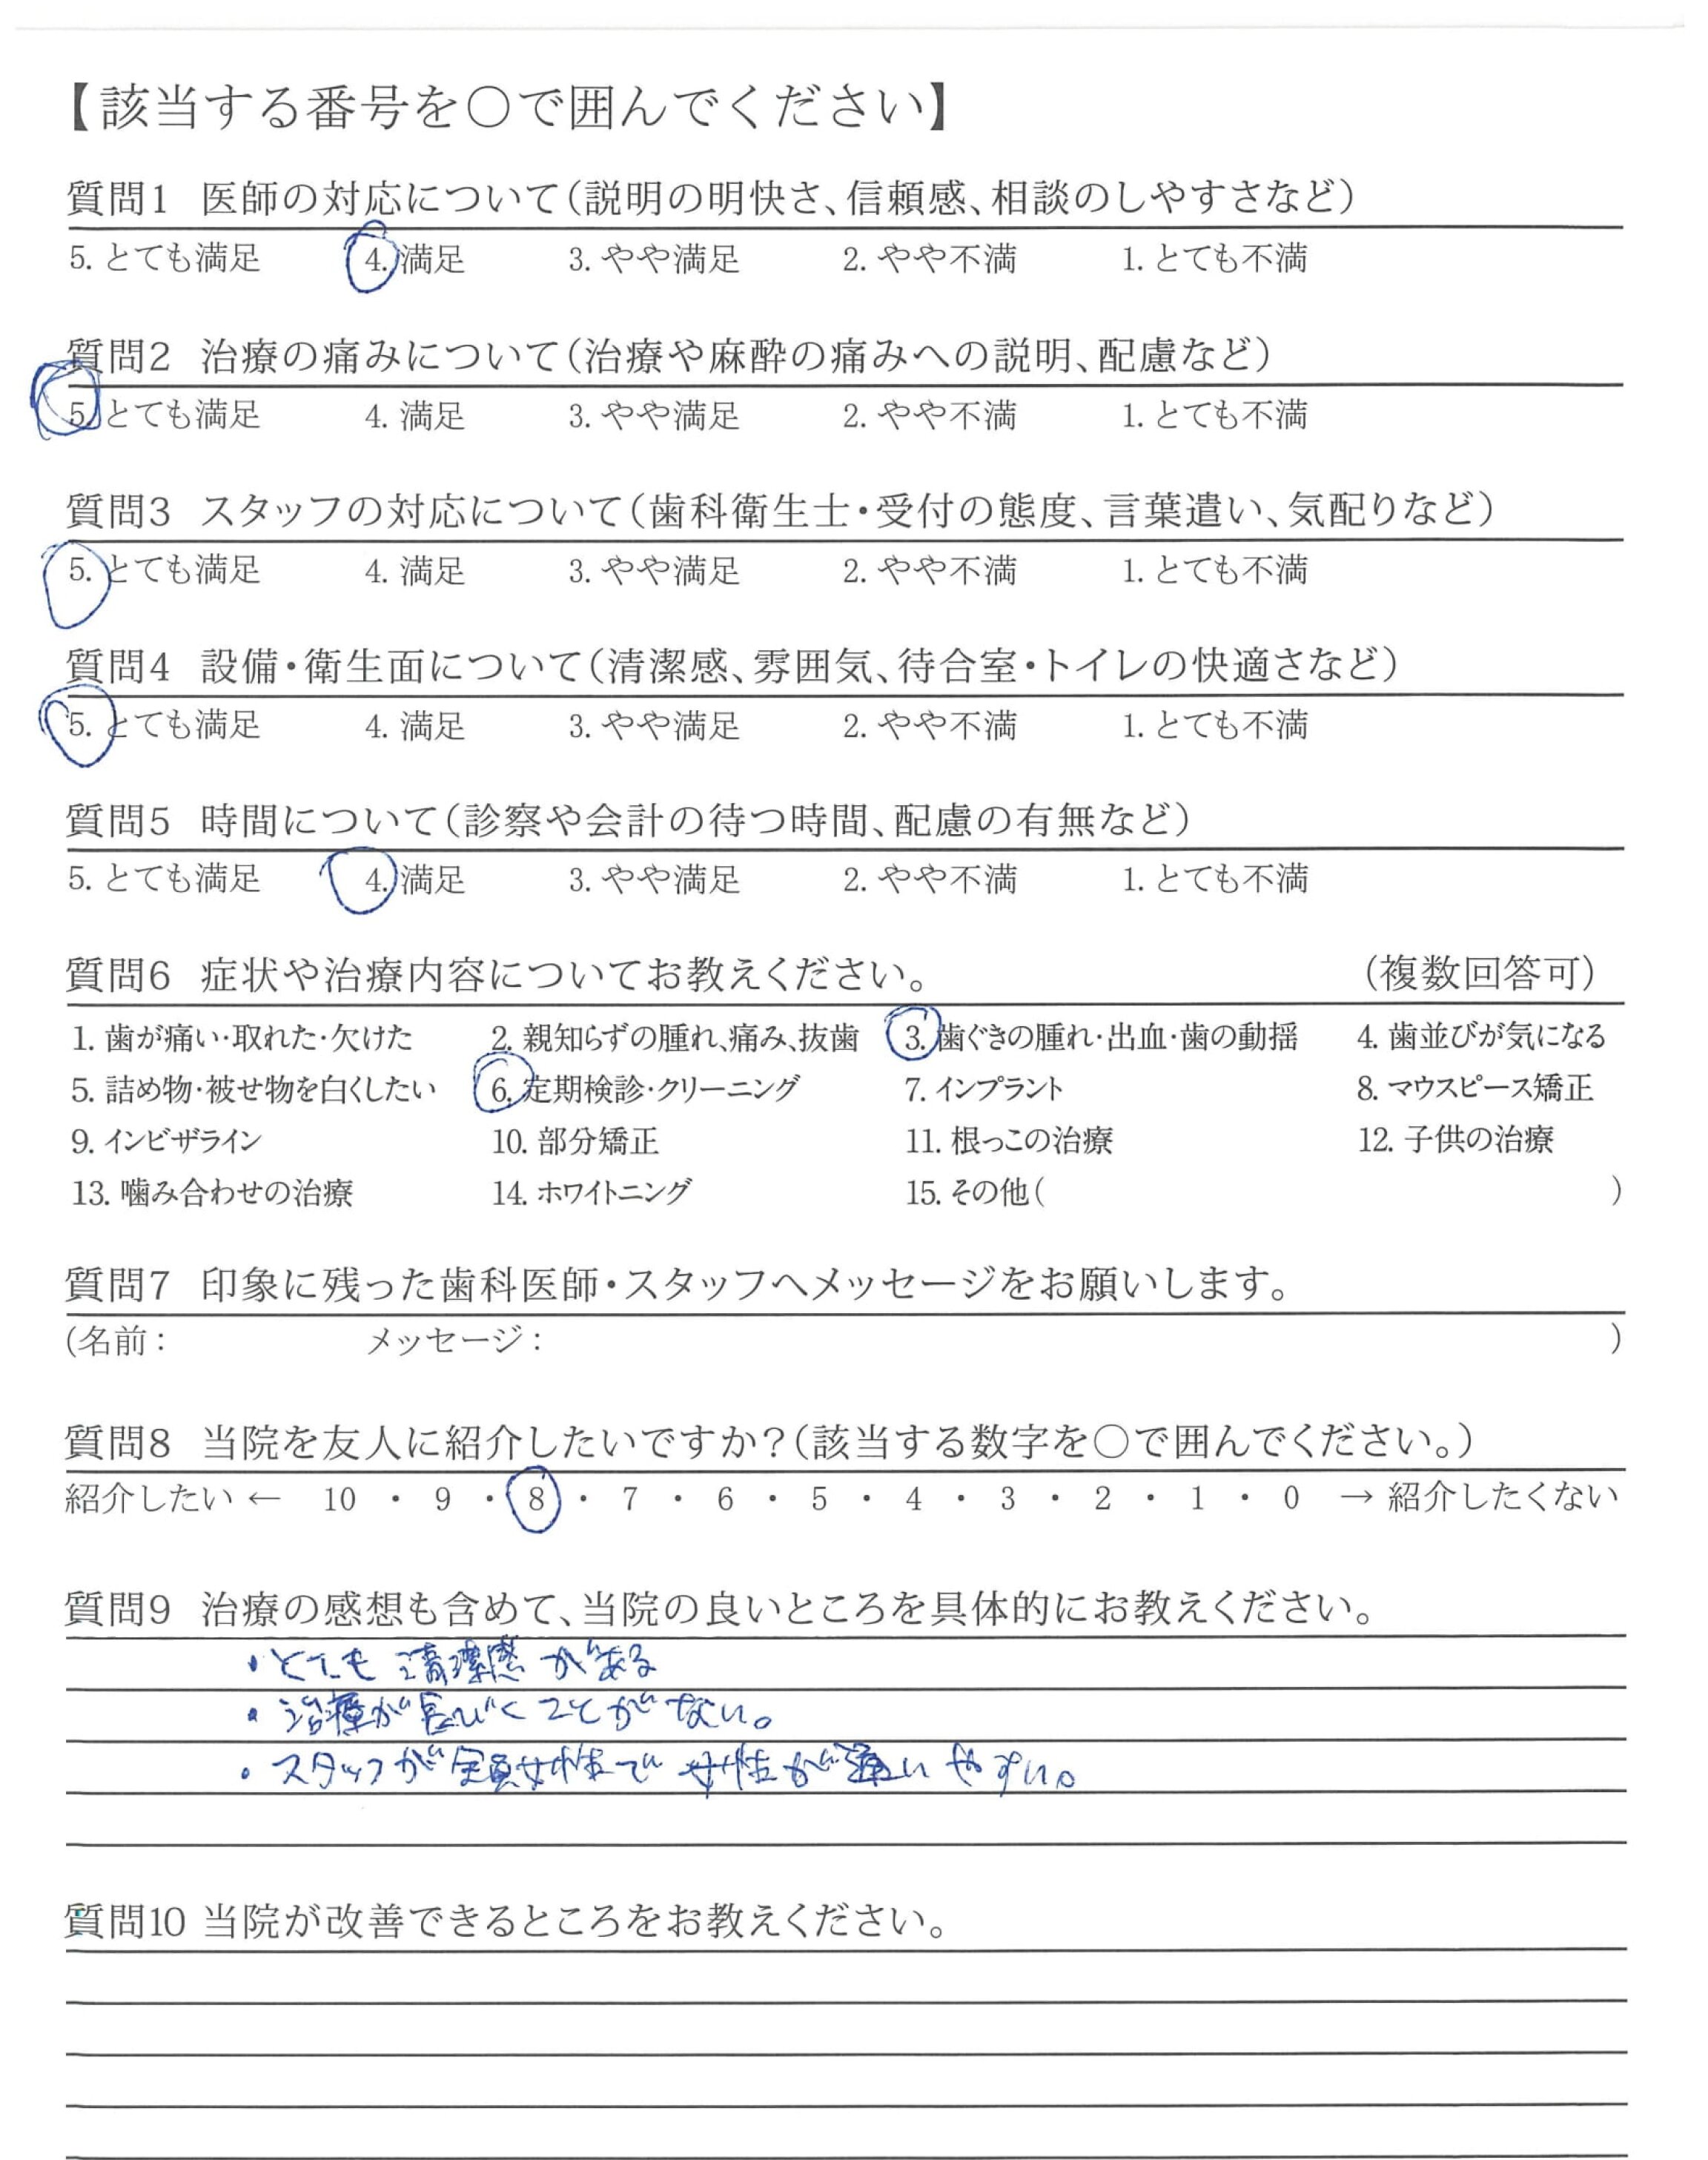 【該当する番号を○で囲んでください】
質問1 医師の対応について(説明の明快さ、信頼感、相談のしやすさなど)
5. とても満足 4. 満足 3. やや満足 2. やや不満 1. とても不満
質問2 治療の痛みについて(治療や麻酔の痛みへの説明、配慮など)
5. とても満足 4. 満足 3. やや満足 2. やや不満 1. とても不満
質問3 スタッフの対応について(歯科衛生士・受付の態度、言葉遣い、気配りなど)
5. とても満足 4. 満足 3. やや満足 2. やや不満 1. とても不満
質問4 設備・衛生面について(清潔感、雰囲気、待合室・トイレの快適さなど)
5. とても満足 4. 満足 3. やや満足 2. やや不満 1. とても不満
質問5 時間について(診察や会計の待つ時間、配慮の有無など)
5. とても満足 4. 満足 3. やや満足 2. やや不満 1. とても不満
質問6 症状や治療内容についてお教えください。 (複数回答可)
1. 歯が痛い・取れた・欠けた 2. 親知らずの腫れ、痛み、抜歯 3. 歯ぐきの腫れ・出血・歯の動揺 4. 歯並びが気になる
5. 詰め物・被せ物を白くしたい 6. 定期検診・クリーニング 7. インプラント 8. マウスピース矯正
9. インビザライン 10. 部分矯正 11. 根っこの治療 12. 子供の治療
13. 噛み合わせの治療 14. ホワイトニング 15. その他( )
質問7 印象に残った歯科医師・スタッフへメッセージをお願いします。
(名前: メッセージ: )
質問8 当院を友人に紹介したいですか?(該当する数字を○で囲んでください。)
紹介したい ← 10 ・ 9 ・ 8 ・ 7 ・ 6 ・ 5 ・ 4 ・ 3 ・ 2 ・ 1 ・ 0 → 紹介したくない
質問9 治療の感想も含めて、当院の良いところを具体的にお教えください。
・とても清潔感がある
・治療が長びくことがない。
・スタッフが全員女性で女性が通いやすい。
質問10 当院が改善できるところをお教えください。